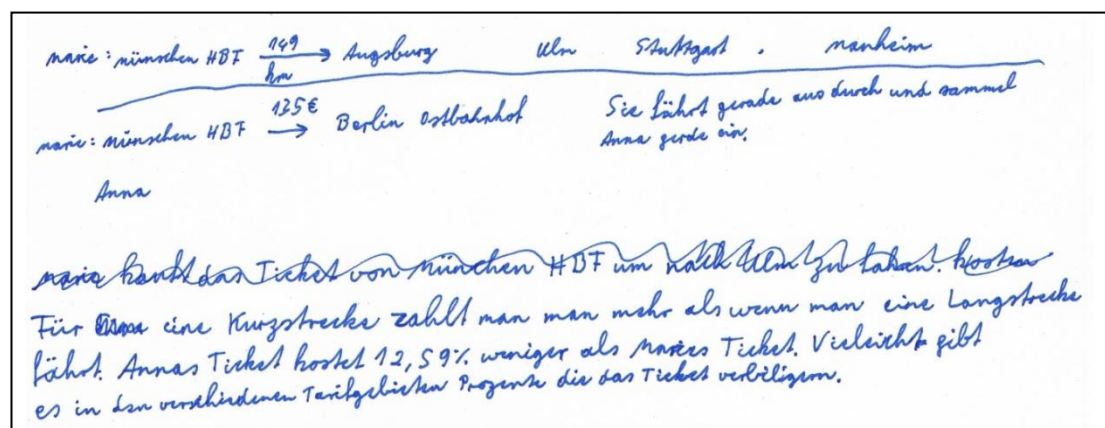 marie: münschen HBF 149 km → Augsburg Ulm Stuttgart . manheim
marie: münschen HBF 135€ → Berlin Ostbahnhof Sie fährt gerade aus durch und sammel
Anna gerde ein.
Anna
marie kauft das Ticket von München HBF um nach Ulm zu fahren. kosten
Für eine Kurzstrecke zahlt man man mehr als wenn man eine Langstrecke
fährt. Annas Ticket kostet 12,59% weniger als Maries Ticket. Vieleicht gibt
es in den verschiedenen Tarifgebieten Prozente die das Ticket verbiligern.